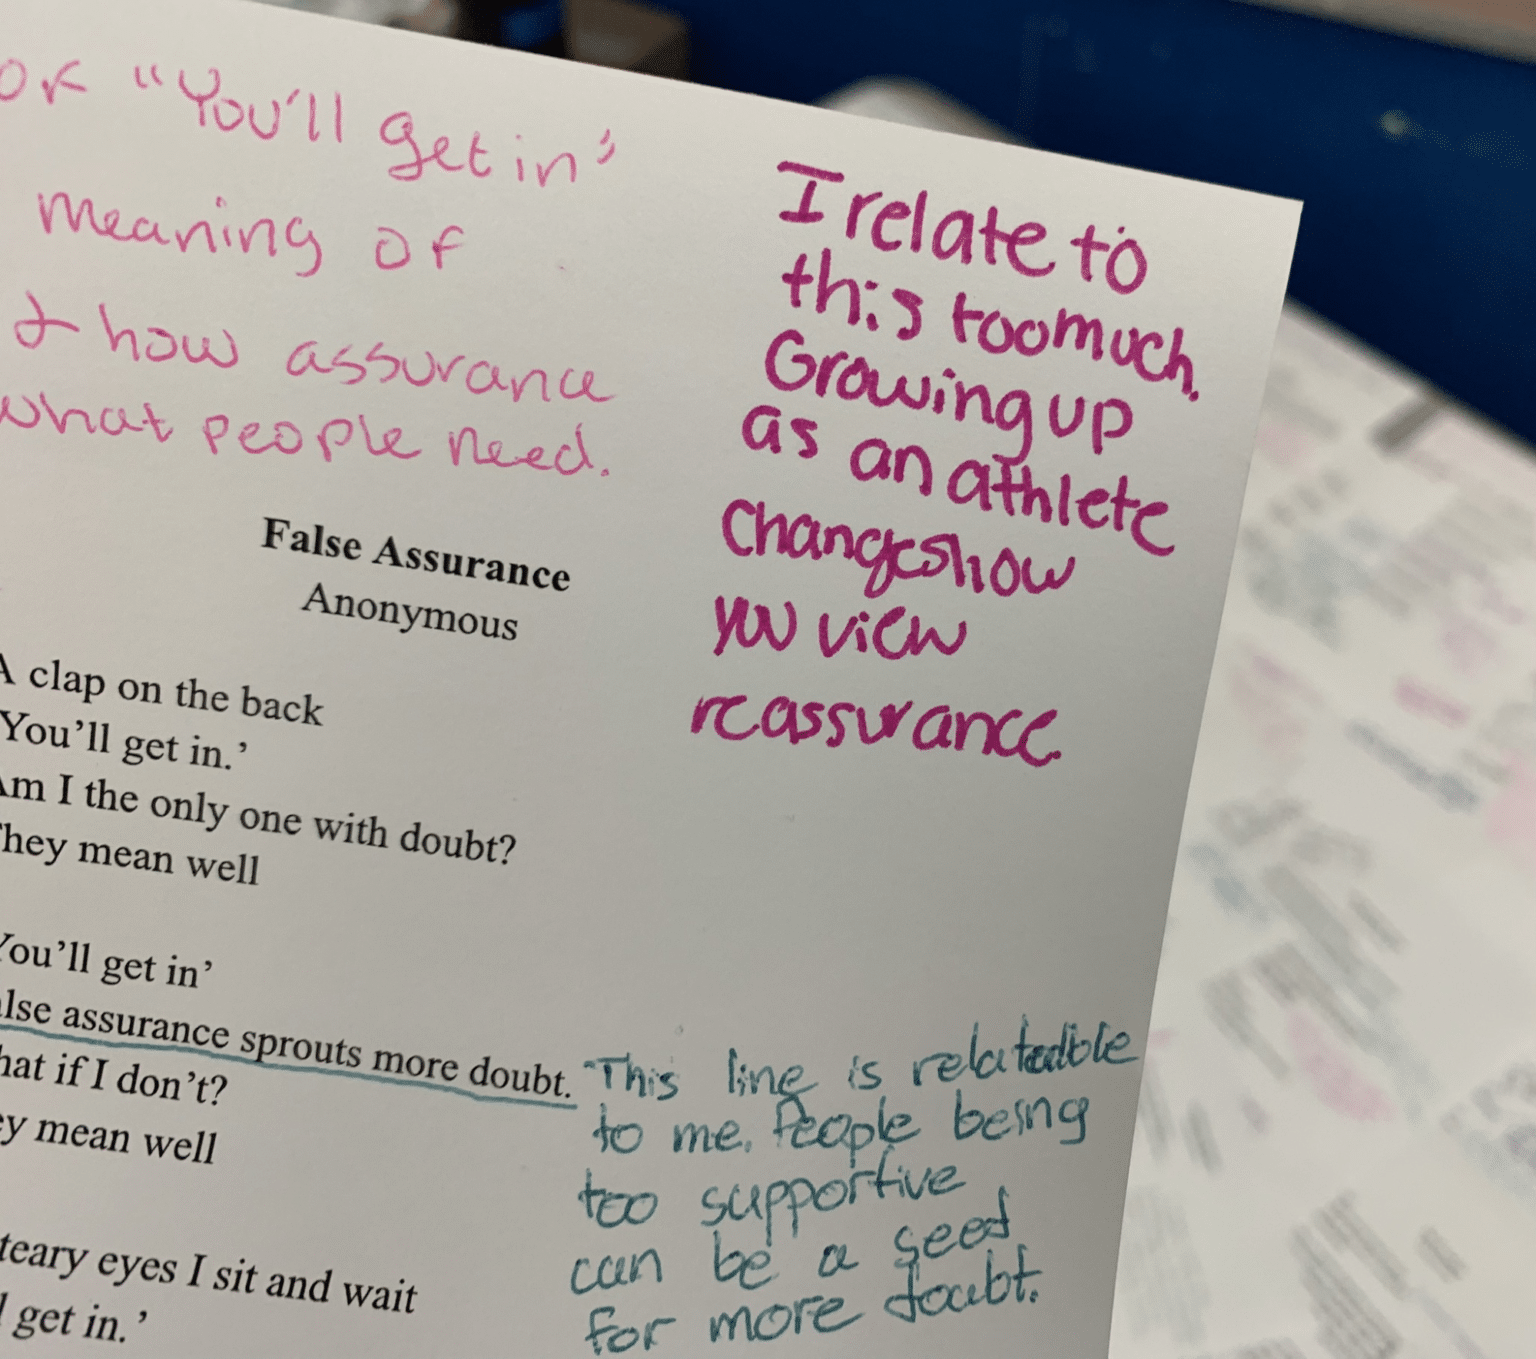 or "You'll get in"
meaning of
& how assurance
what people need.
I relate to
this too much.
Growing up
as an athlete
changes how
you view
reassurance.
False Assurance
Anonymous
A clap on the back
'You'll get in.'
Am I the only one with doubt?
They mean well
'You'll get in'
alse assurance sprouts more doubt.
hat if I don't?
ey mean well
This line is relatable
to me. People being
too supportive
can be a seed
for more doubt.
teary eyes I sit and wait
l get in.'